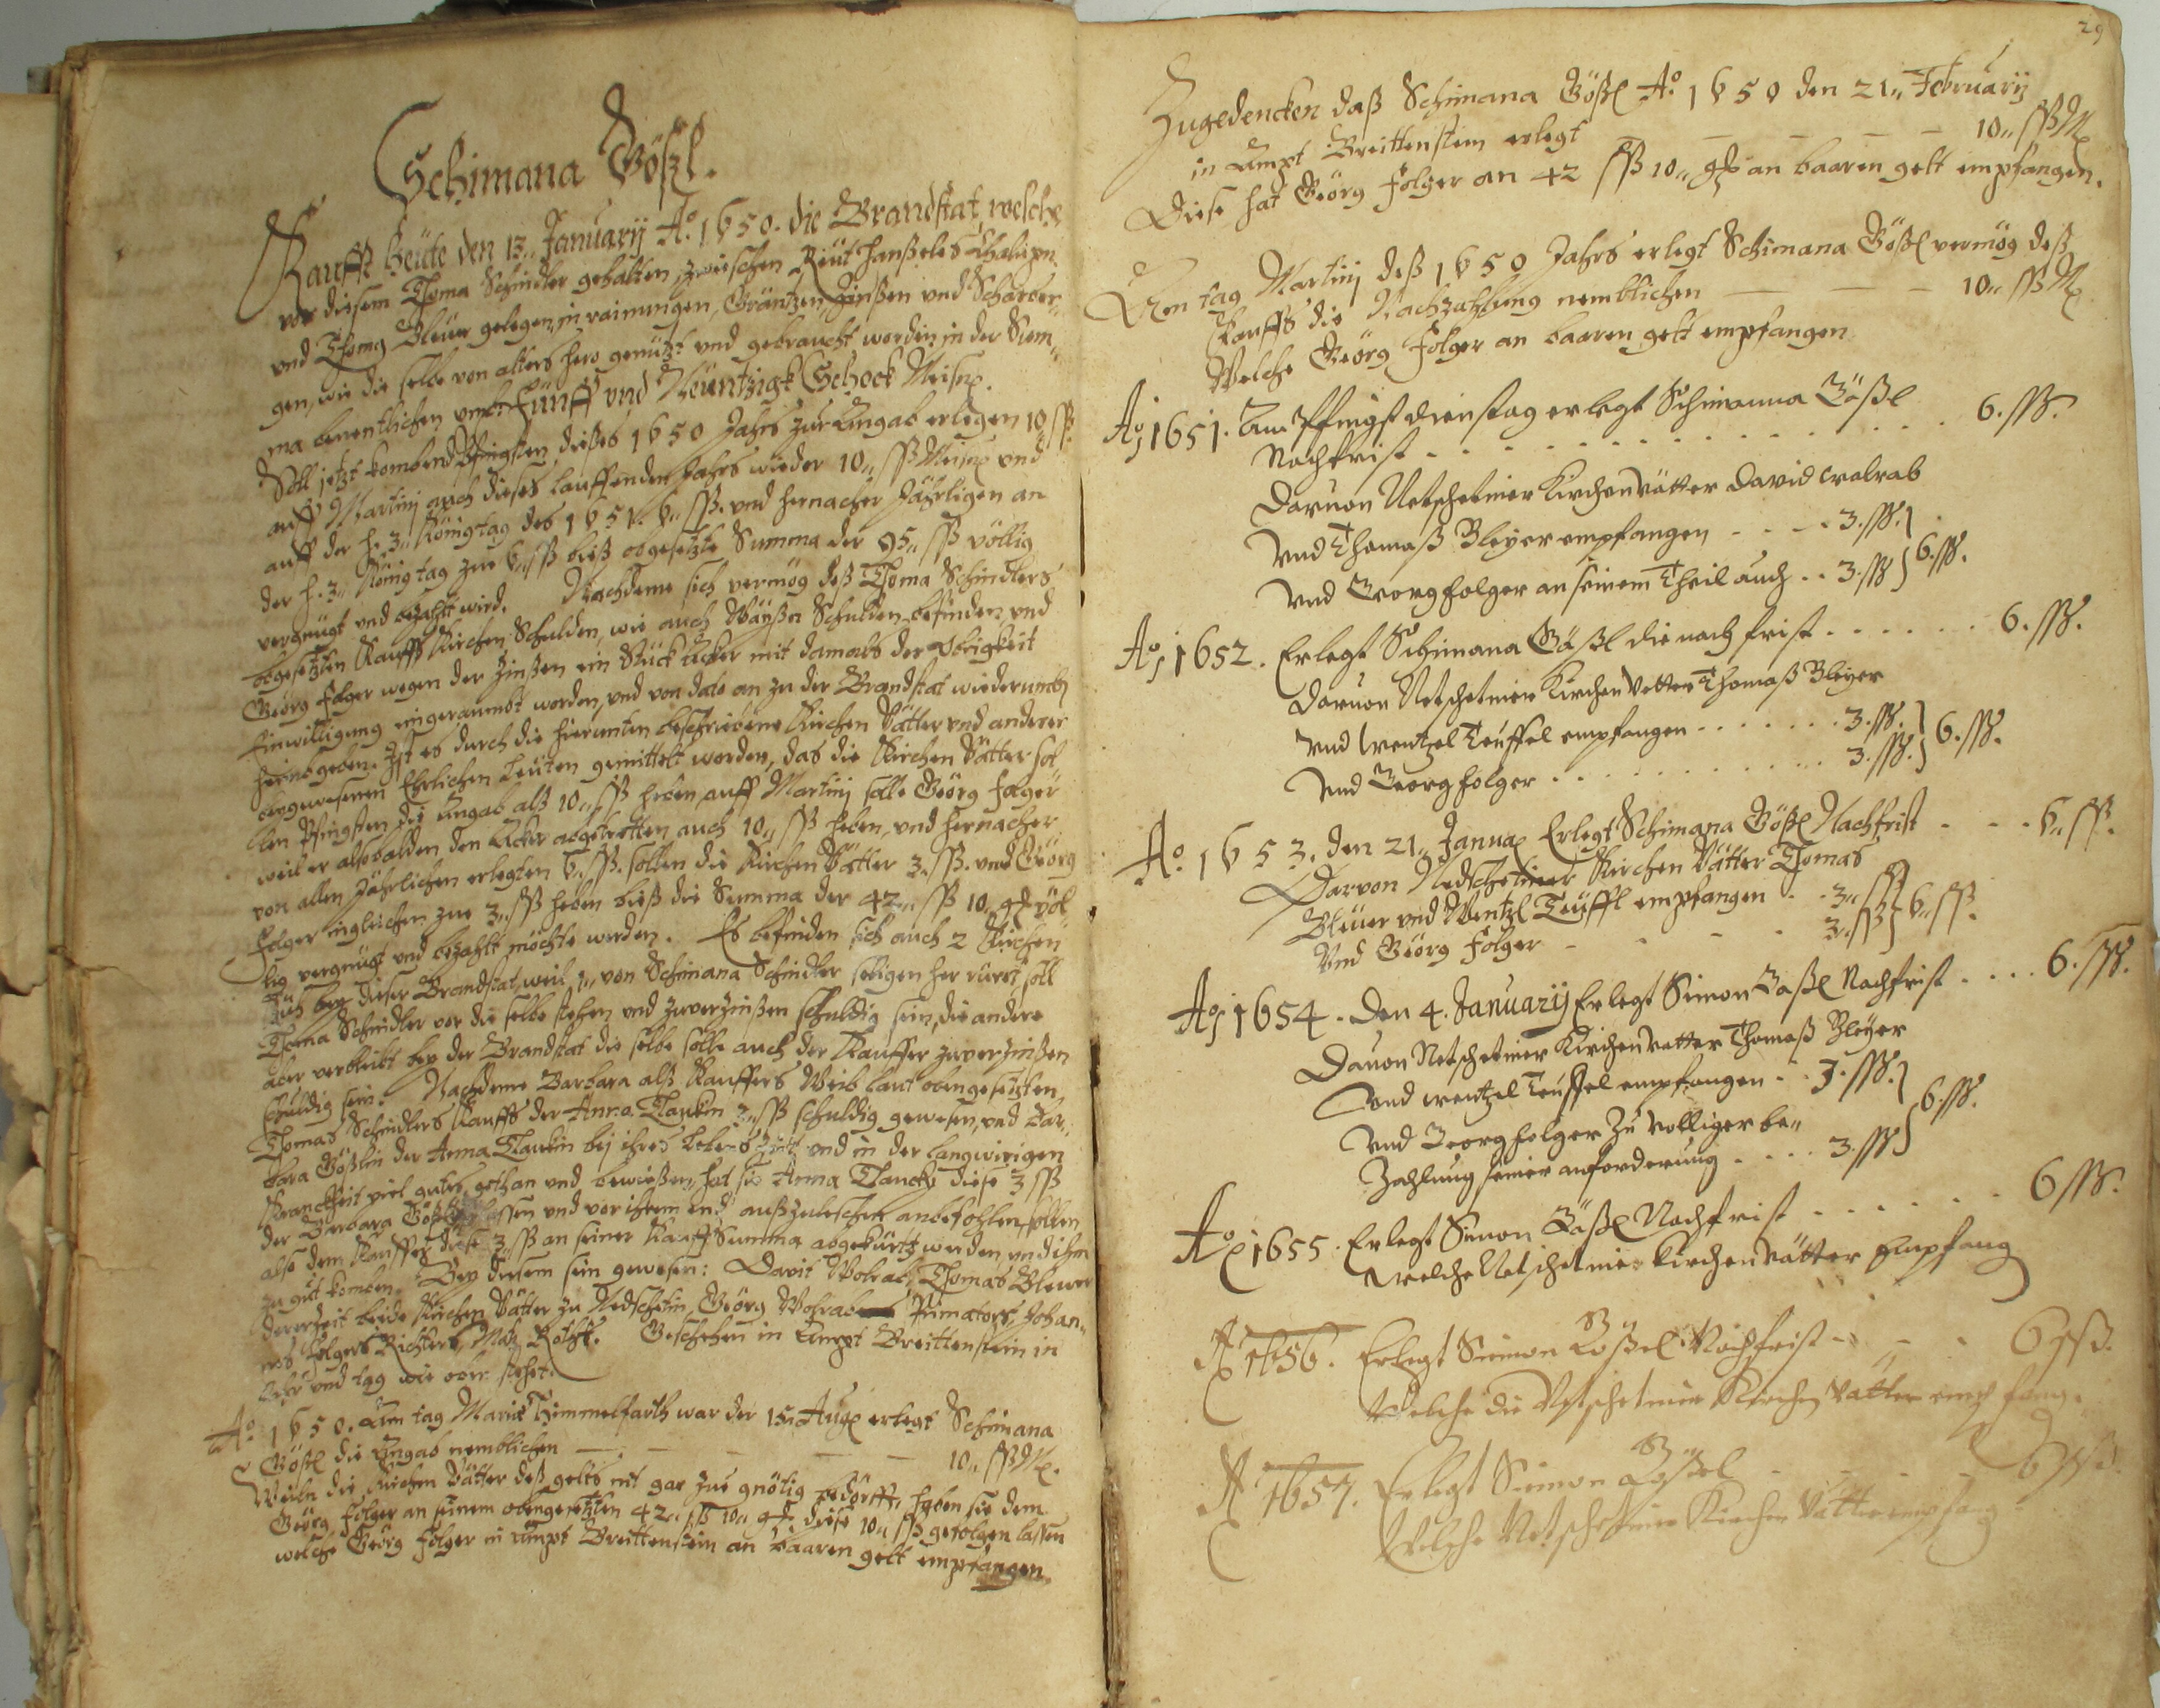 Schimana Gößl.
Kaufft heüte den 13. January Ao. 1650. die Brandstat, welche
vor diesem Thoma Schindler gehalten, zwischen Reut Hanßeles
und Thoma Bleüer gelegen, in rainungen, Gräntzen, Zinßen und Scharwer,,
gen, wie die selbe von alters hero genützt und gebraucht worden, in der Sum,,
ma benentlichen umb: Fünff und Neüntzigk Schock Meisn.
Soll jetzt kombend Pfingsten dießes 1650 Jahrs zur Angab erlegen 10 ßß
auff Martinj auch dieses lauffenden Jahrs wieder 10,, ßß Meisn und
auff der h. 3,, König tag des 1651. 6,, ßß. und hernacher Jährligen an
der h. 3,, König tag zue 6,, ßß bieß obgesetzte Summa der 95,, ßß völlig
vergnügt und bezahlt wird. Nachdeme sich vermög deß Thoma Schindlers
obgesetzten Kauffs Kirchen Schulden, wie auch Waÿßen Schulden befinden, und
Georg Folger wegen der Zinßen ein Stück Acker mit damals der Obrigkeit
Einwilligung eingeraumbt worden, und von dato an zu der Brandstat wiederumb
hernbgeben. Ist es durch die hierunten beschriebene Kirchen Vätter und anderer
beygewesenen Ehrlichen Leüten gemittelt worden, das die Kirchen Vätter sol
len Pfingsten die Angab alß 10,, ßß heben, auff Martinj solle Georg Folger
weil er alsobalden den Acker abgetretten auch 10,, ßß heben, und hernacher
von allen Jährlichen erlegten 6,, ßß. sollen die Kirchen Vätter 3,, ßß. und Georg
Folger ingleichen zue 3,, ßß heben bieß die Summa der 42,, ßß 10 gr völ
lig vergnügt und bezahlt möchte werden. Es befinden sich auch 2 Kirchen
Küh bey dieser Brandstat, weil 1,, von Schimana Schindler seligen her rürt, soll
Thoma Schindler vor die selbe stehen und zuverzinßen schuldig sein, die andere
aber verbleibt bey der Brandstat die selbe solle auch der Kauffer zuverzinßen
schuldig sein. Nachdeme Barbara alß Kauffers Weib laut obengesetzten
Thomas Schindlers Kauffs der Anna Planckin 3,, ßß schuldig gewesen, und Bar,,
bara Gößlin der Anna Planckin bej ihres Lebens Zeit und in der langwirigen
Kranckheit viel gutes gethan und bewießen, hat sie Anna Planckin diese 3 ßß
der Barbara Gößlin lassen und vor ihrem end außzuleschen anbefohlen, sollen
also dem Kauffer diese 3,, ßß an seiner Kauff Summa abgekürtzt werden, und ihm
zu gut kommen. Bey diesem sein gewesen: Davit Wolrab, Thomas Bleuer
dererzeit beide Kirchen Vätter zu Netschetin, Georg Wolrab Primators, Johan,,
nes Folgers Richters, Matz Röthl. Geschehen in Ampt Breittenstein in
Jahr und tag wie oben stehet.
Ao. 1650. Am tag Mariæ Himmelfarth war der 15. Aug. erlegt Schimana
Gößl die Angab nemblichen — — — — 10,, ßß M.
Weiln die Kirchen Vätter deß gelts nit gar zue gnötig bedörfft, haben sie dem
Georg Folger an seinem obengesetzten 42,, ßß 10,, gr. diese 10,, ßß gefolgen lassen
welche Georg Folger in Ampt Breittenstein an baaren gelt empfangen
29
Zugedencken daß Schimana Gößl Ao. 1650 den 21,, Februarÿ
in Ampt Breittenstein erlegt — — — — — 10,, ßß M
Diese hat Georg Folger an 42 ßß 10,, gr an baaren gelt empfangen.
Am tag Martinj deß 1650 Jahrs erlegt Schimana Gößl vermög deß
Kauffs die Nachzahlung nemblichen — — — 10,, ßß M
Welche Georg Folger an baaren gelt empfangen
Ao. 1651. Am Pfingst dienstag erlegt Schimanna Gößl
Nachfrist . . . . . . . . . . . . 6. ßß.
Daruon Netschetiner Kirchen Vätter David walrab
Vnd Thomaß Bleyer empfangen - - - . 3. ßß.
Vnd Georg folger an seinem Theil auch . . 3. ßß } 6. ßß.
Ao. 1652. Erlegt Schimana Gößl die nach frist . . . . . . 6. ßß.
Daruon Netschetiner Kirchen Vetter Thomaß Bleyer
Vnd wentzel Teuffel empfangen . . . . . . . 3. ßß.
Vnd Georg folger . . . . . . . . . . . . 3. ßß. } 6. ßß.
Ao. 1653. den 21,, Januar Erlegt Schimana Gößl Nachfrist - - - . 6,, ßß.
Darvon Nedschetiner Kirchen Vätter Thomas
Bleüer und Wentzl Teüffl empfangen . . 3,, ßß
Vnd Georg Folger - - - . 3,, ßß } 6,, ßß.
Ao. 1654. Den 4. Januarÿ Erlegt Simon Gößl Nachfrist . . . . 6. ßß.
Dauon Netschetiner Kirchen vatter Thomaß Bleÿer
Vnd wentzel Teuffel empfangen . . 3. ßß.
Vnd Georg folger Zu völliger be,,
Zahlung seiner anforderung . . . . 3. ßß } 6. ßß.
Ao. 1655. Erlegt Simon Gößl Nachfrist . . . . . . 6 ßß.
welche Netschetiner Kirchen Vätter Empfang
A 1656. Erlegt Simon Gößel Nachfrist - - - . 6 ßß.
Welche die Netschetiner Kirchen Vätter empfang.
A 1657. Erlegt Simon Gößel - - - - 6 ßß
Welche Netschetiner Kirchen Vätter empfang